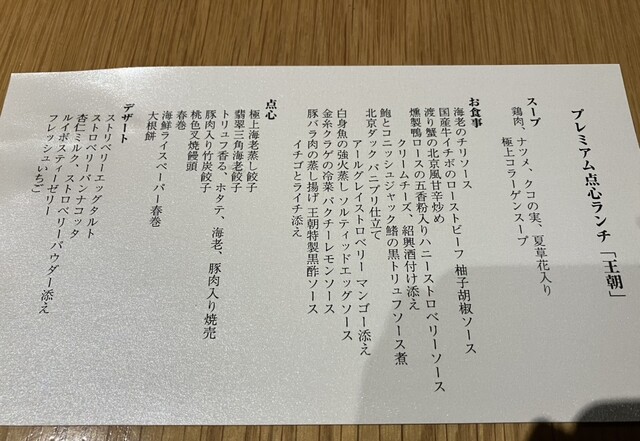 プレミアム点心ランチ「王朝」
スープ
鶏肉、ナツメ、クコの実、夏草花入り
極上コラーゲンスープ
お食事
海老のチリソース
国産牛イチボのローストビーフ 柚子胡椒ソース
渡り蟹の北京風甘辛炒め
燻製鴨ロースの五香粉入りハニーストロベリーソース
クリームチーズ、紹興酒付け添え
鮑とコニッシュジャック鱔の黒トリュフソース煮
北京ダック バニプリ仕立て
アールグレイストロベリー マンゴー添え
白身魚の強火蒸し ソルティッドエッグソース
金糸クラゲの冷菜 パクチーレモンソース
豚バラ肉の蒸し揚げ 王朝特製黒酢ソース
イチゴとライチ添え
点心
極上海老蒸し餃子
翡翠三角海老餃子
トリュフ香る、ホタテ、海老、豚肉入り焼売
豚肉入り竹炭餃子
桃色叉焼饅頭
春巻
海鮮ライスペーパー春巻
大根餅
デザート
ストロベリーエッグタルト
ストロベリーパンナコッタ
杏仁ミルク、ストロベリーパウダー添え
ルイボスティーゼリー
フレッシュいちご